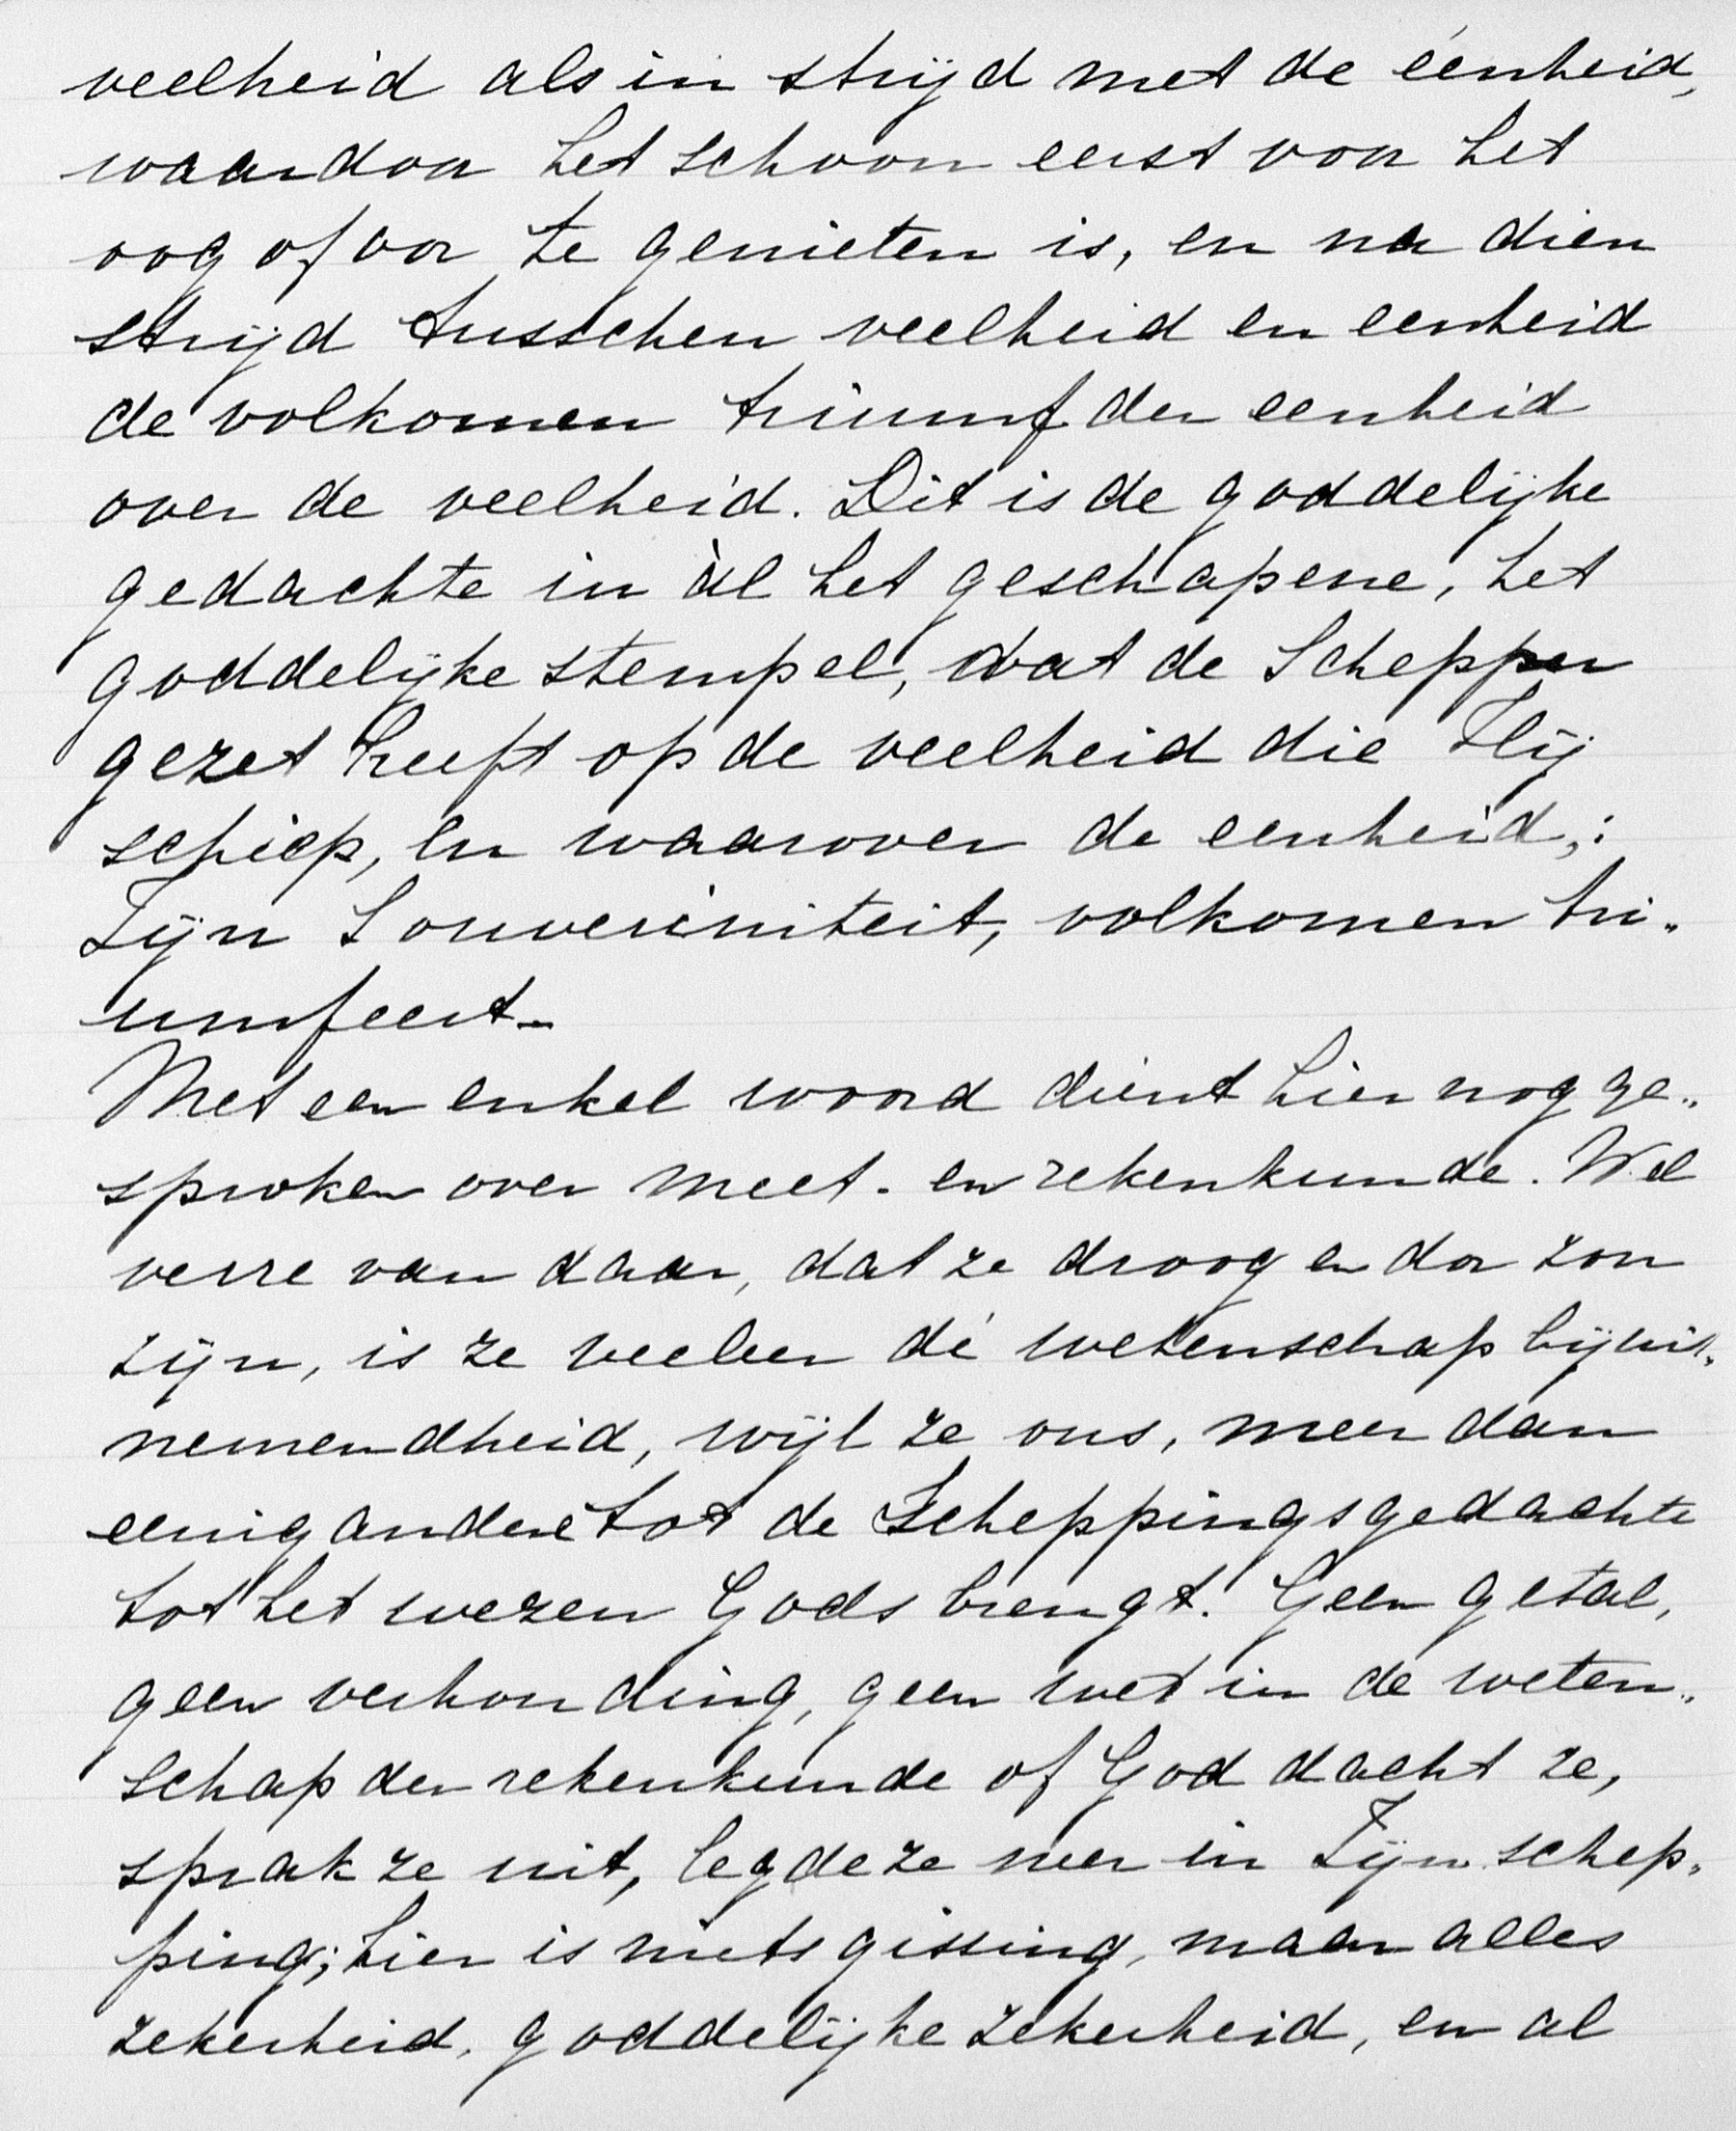 veelheid als in strijd met de éenheid,
waardoor het schoon eerst voor het
oog of oor te genieten is, en na dien
strijd tusschen veelheid en eenheid
de volkomen triumf der eenheid
over de veelheid. Dit is de goddelijke
gedachte in àl het geschapene, het
goddelijke stempel, dat de Schepper
gezet heeft op de veelheid die Hij
schiep, en waarover de eenheid,:
Zijn Souvereiniteit, volkomen tri„
umfeert.
Met een enkel woord dient hier nog ge„
sproken over meet- en rekenkunde. Wel
verre van daar, dat ze droog en dor zou
zijn, is ze veeleer dé wetenschap bijuit„
nemendheid, wijl ze ons, meer dan
eenig andere tot de Scheppingsgedachte
tot het wezen Gods brengt. Geen getal,
geen verhouding, geen wet in de weten„
schap der rekenkunde of God dacht ze,
sprak ze uit, legde ze neer in Zijn schep„
ping; hier is niets gissing, maar alles
zekerheid, goddelijke zekerheid, en al